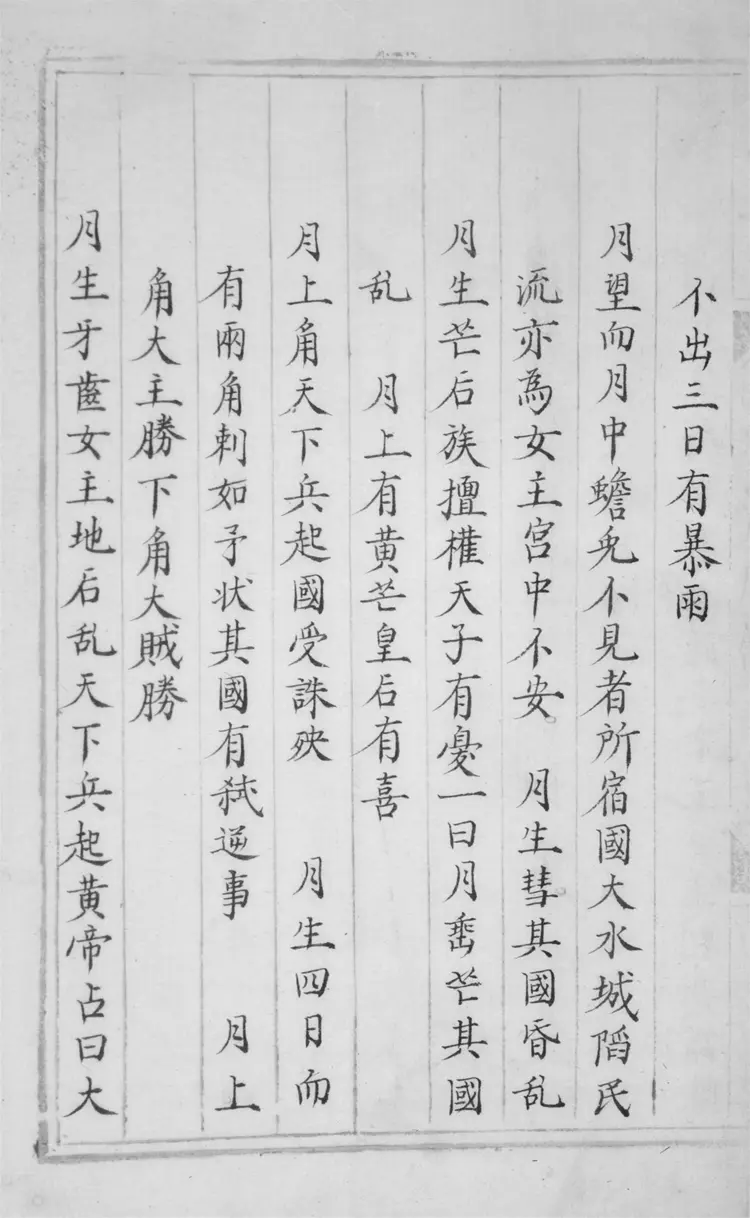 不出三日有暴雨
月望而月中蟾兎不見者所宿國大水城陷民
流亦為女主宮中不安　月生彗其國昏乱
月生芒后族擅權天子有憂一曰月乖芒其國
乱　月上有黃芒皇后有喜
月上角天下兵起國受誅殃　月生四日而
有兩角刺如矛状其國有弑逆事　月上
角大主勝下角大賊勝
月生牙齒女主地后乱天下兵起黃帝占曰大